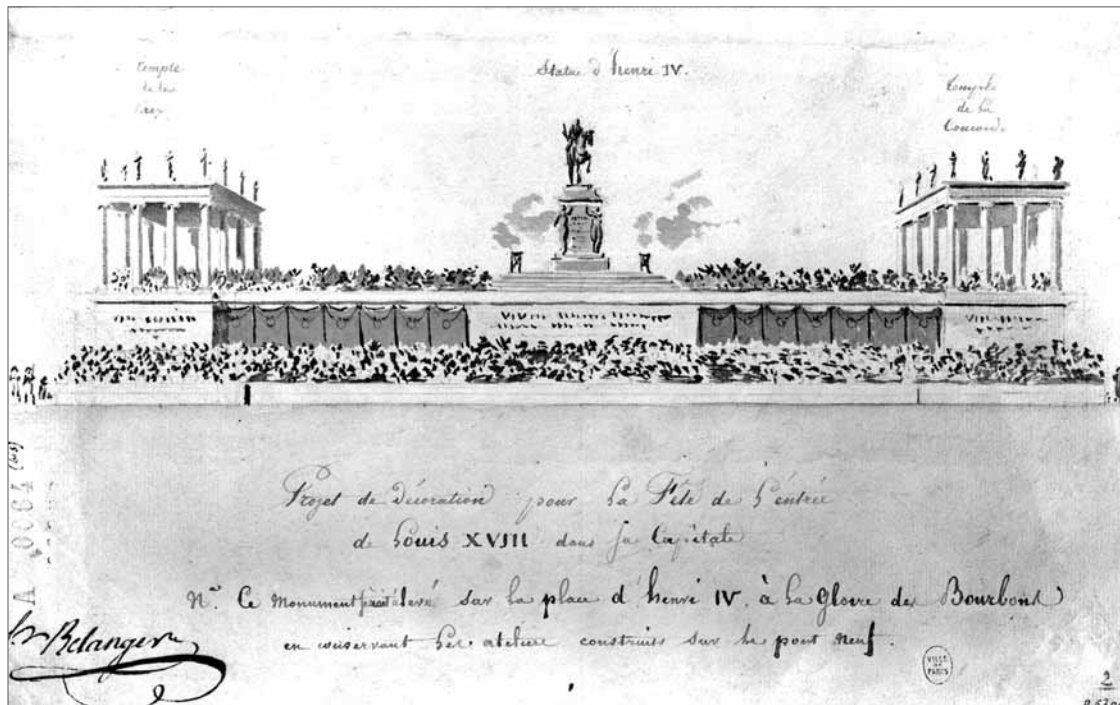 Temple
de la
Paix
Statue d'henri IV.
Temple
de la
Concorde
Projet de Décoration pour la Fête de l'entrée
de Louis XVIII dans sa Capitale
N.ª Ce Monument serait élevé sur la place d'henri IV, à la Gloire des Bourbons
en conservant les ateliers construits sur le pont Neuf.
Belanger
A 0064 (bis)
VILLE
DE
PARIS
2